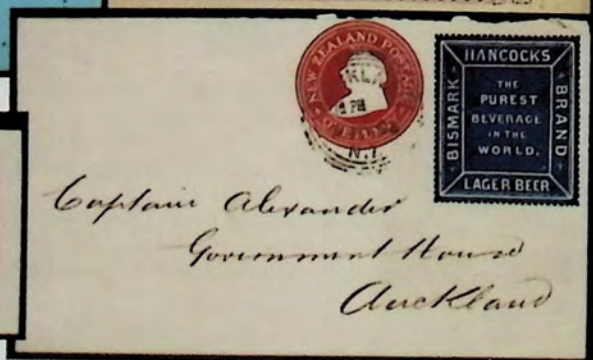 NEW ZEALAND POSTAGE
ONE PENNY
HANCOCKS
BISMARK
THE
PUREST
BEVERAGE
IN THE
WORLD.
BRAND
LAGER BEER
Captain Alexander
Government House
Auckland